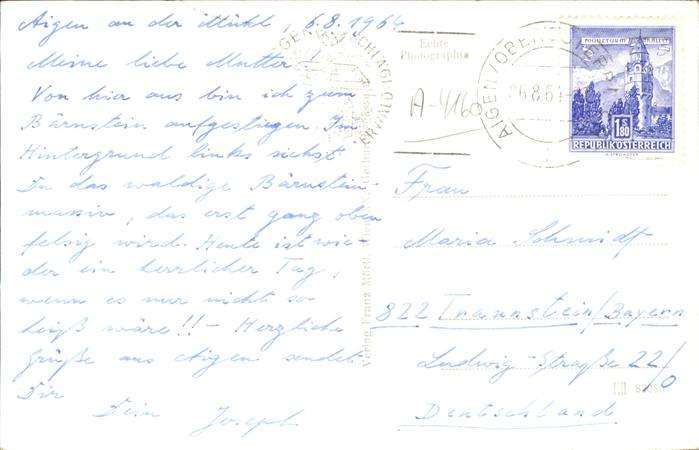 Aigen an der Mühl, 6.8.1964
Meine liebe Mutter!
Von hier aus bin ich zum
Bärnstein aufgestiegen. Im
Hintergrund links siehst
Du das waldige Bärnstein-
massiv, das erst ganz oben
felsig wird. Heute ist wie-
der ein herrlicher Tag,
wenn es nur nicht so
heiß wäre!! - Herzliche
Grüße aus Aigen sendet
Dir
Dein Joseph
Echte
Photographie
A-416
AIGEN/OBER
6.8.6
1.80
REPUBLIK ÖSTERREICH
Frau
Maria Schmidt
822 Traunstein/Bayern
Ludwig-Straße 22/0
Deutschland
Verlag Franz Mörtl,